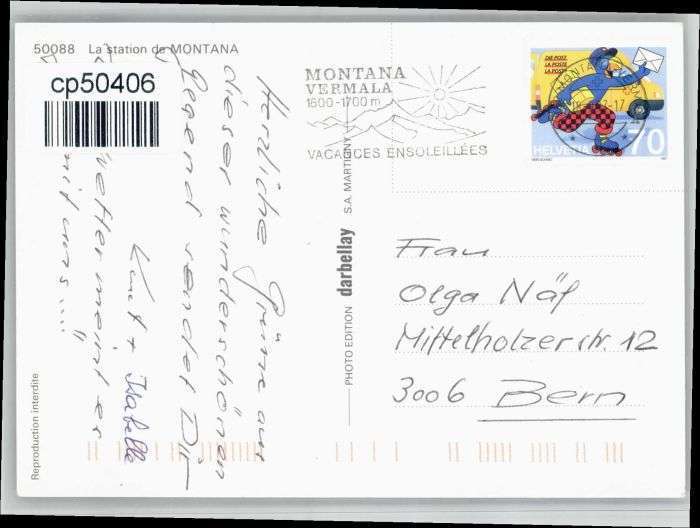 50088 La station de MONTANA
cp50406
MONTANA
VERMALA
1500-1700 m
VACANCES ENSOLEILLÉES
DIE POST
LA POSTE
LA POSTA
HELVETIA
70
Herzliche Grüsse aus
dieser wunderschönen
Gegend sendet Dir
Kurt + Isabelle
wetter meint er
mit uns....!
PHOTO EDITION darbellay S.A. MARTIGNY
Reproduction interdite
Frau
Olga Näf
Mittelholzerstr. 12
3006 Bern